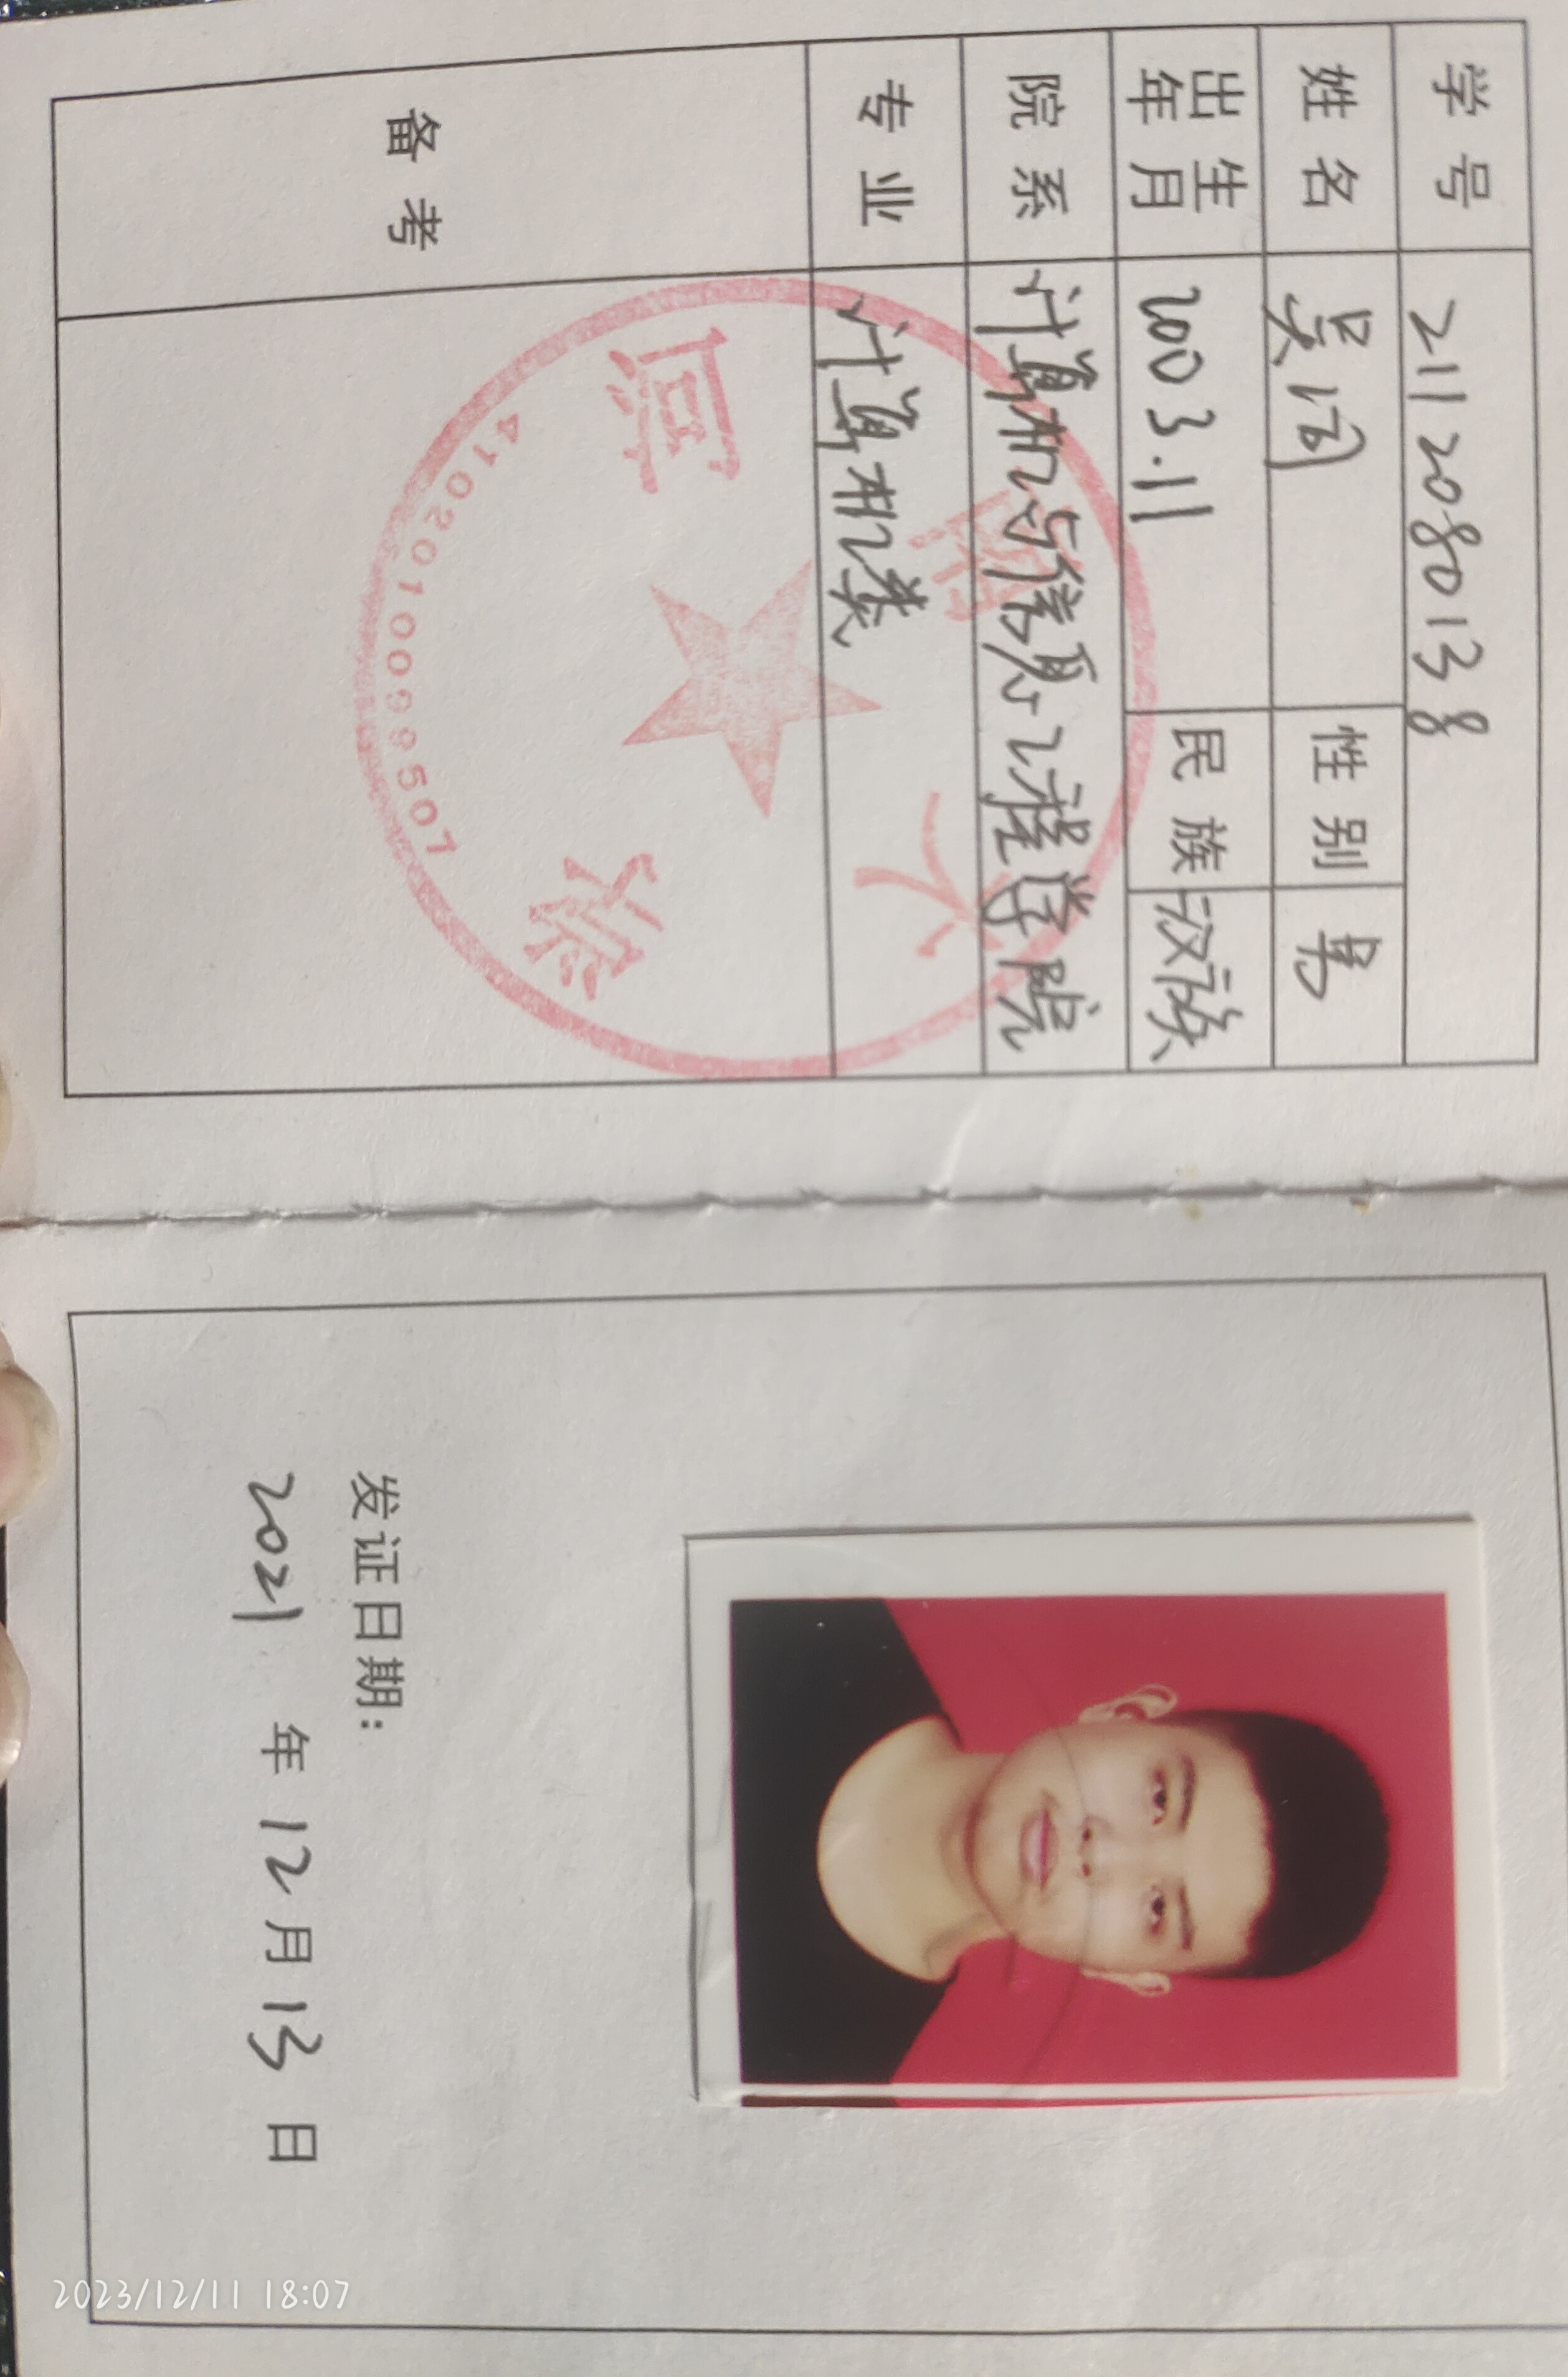 学号 2112080138
姓名 吴 性别 男
出生年月 2003.11 民族 汉族
院系 计算机与信息工程学院
专业 计算机类
备考
河南大学
4102010099507
发证日期:
2021 年 12 月 13 日
2023/12/11 18:07